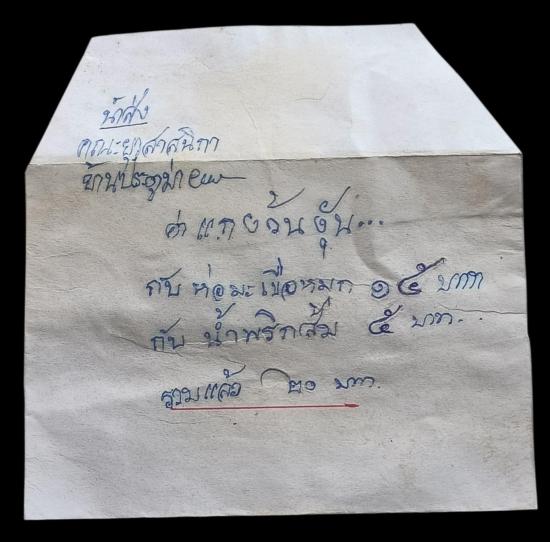 นำส่ง
คณะผู้สาสนิกา
บ้านประตูม่า
ค่าแกงวันงุ้น...
กับ ห่อมะเขือหมุก ๑๕ บาท
กับ น้ำพริกส้ม ๕ บาท..
รวมแล้ว ๒๐ บาท.